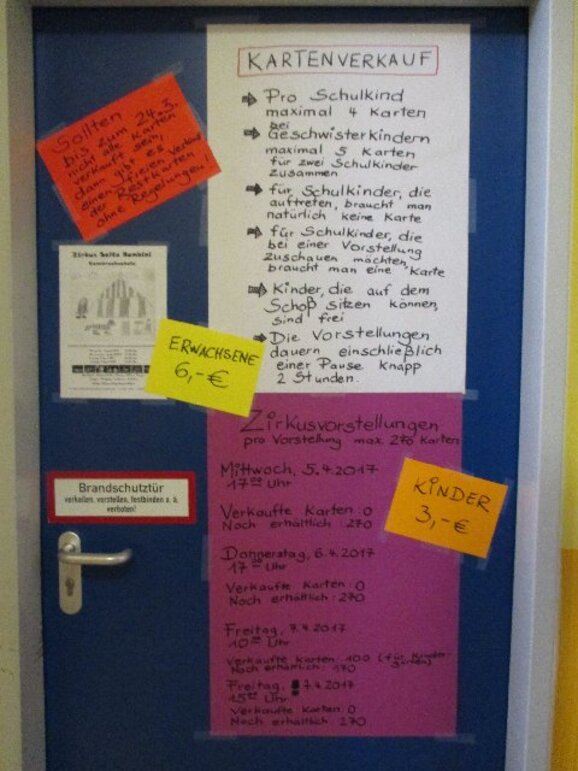 KARTENVERKAUF
Pro Schulkind
maximal 4 Karten
bei
Geschwisterkindern
maximal 5 Karten
für zwei Schulkinder
zusammen
für Schulkinder, die
auftreten, braucht man
natürlich keine Karte
für Schulkinder, die
bei einer Vorstellung
zuschauen möchten,
braucht man eine Karte
Kinder, die auf dem
Schoß sitzen können,
sind frei
Die Vorstellungen
dauern einschließlich
einer Pause knapp
2 Stunden.
Sollten
bis zum 24.3.
nicht alle Karten
verkauft sein,
dann gibt es
einen freien Verkauf
der Restkarten
ohne Regelungen!
Zirkus Salto Bambini
ERWACHSENE
6,-€
Brandschutztür
verkeilen, verstellen, festbinden o. ä.
verboten!
Zirkusvorstellungen
pro Vorstellung max. 270 Karten
Mittwoch, 5.4.2017
17⁰⁰ Uhr
Verkaufte Karten: 0
Noch erhältlich: 270
KINDER
3,-€
Donnerstag, 6.4.2017
17⁰⁰ Uhr
Verkaufte Karten: 0
Noch erhältlich: 270
Freitag, 7.4.2017
10⁰⁰ Uhr
Verkaufte Karten: 100 (für Kinder-
gärten)
Noch erhältlich: 170
Freitag, 7.4.2017
15⁰⁰ Uhr
Verkaufte Karten: 0
Noch erhältlich: 270